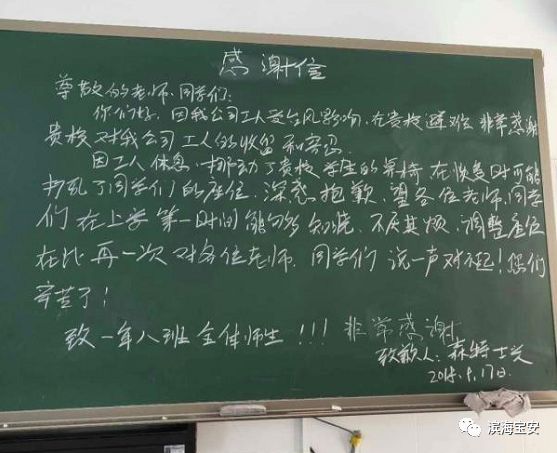 感谢信
尊敬的老师、同学们:
你们好,因我公司工人受台风影响,在贵校避难 非常感谢
贵校对我公司工人的收留和容忍。
因工人休息,挪动了贵校学生的桌椅 在恢复时可能
打乱了同学们的座位。深感抱歉,望各位老师、同学
们在上学第一时间能够知晓,不厌其烦,调整座位
在此再一次对各位老师、同学们说一声对不起!您们
辛苦了!
致一年八班全体师生!!! 非常感谢
致歉人:森特士兴
2018.9.17日.
滨海宝安